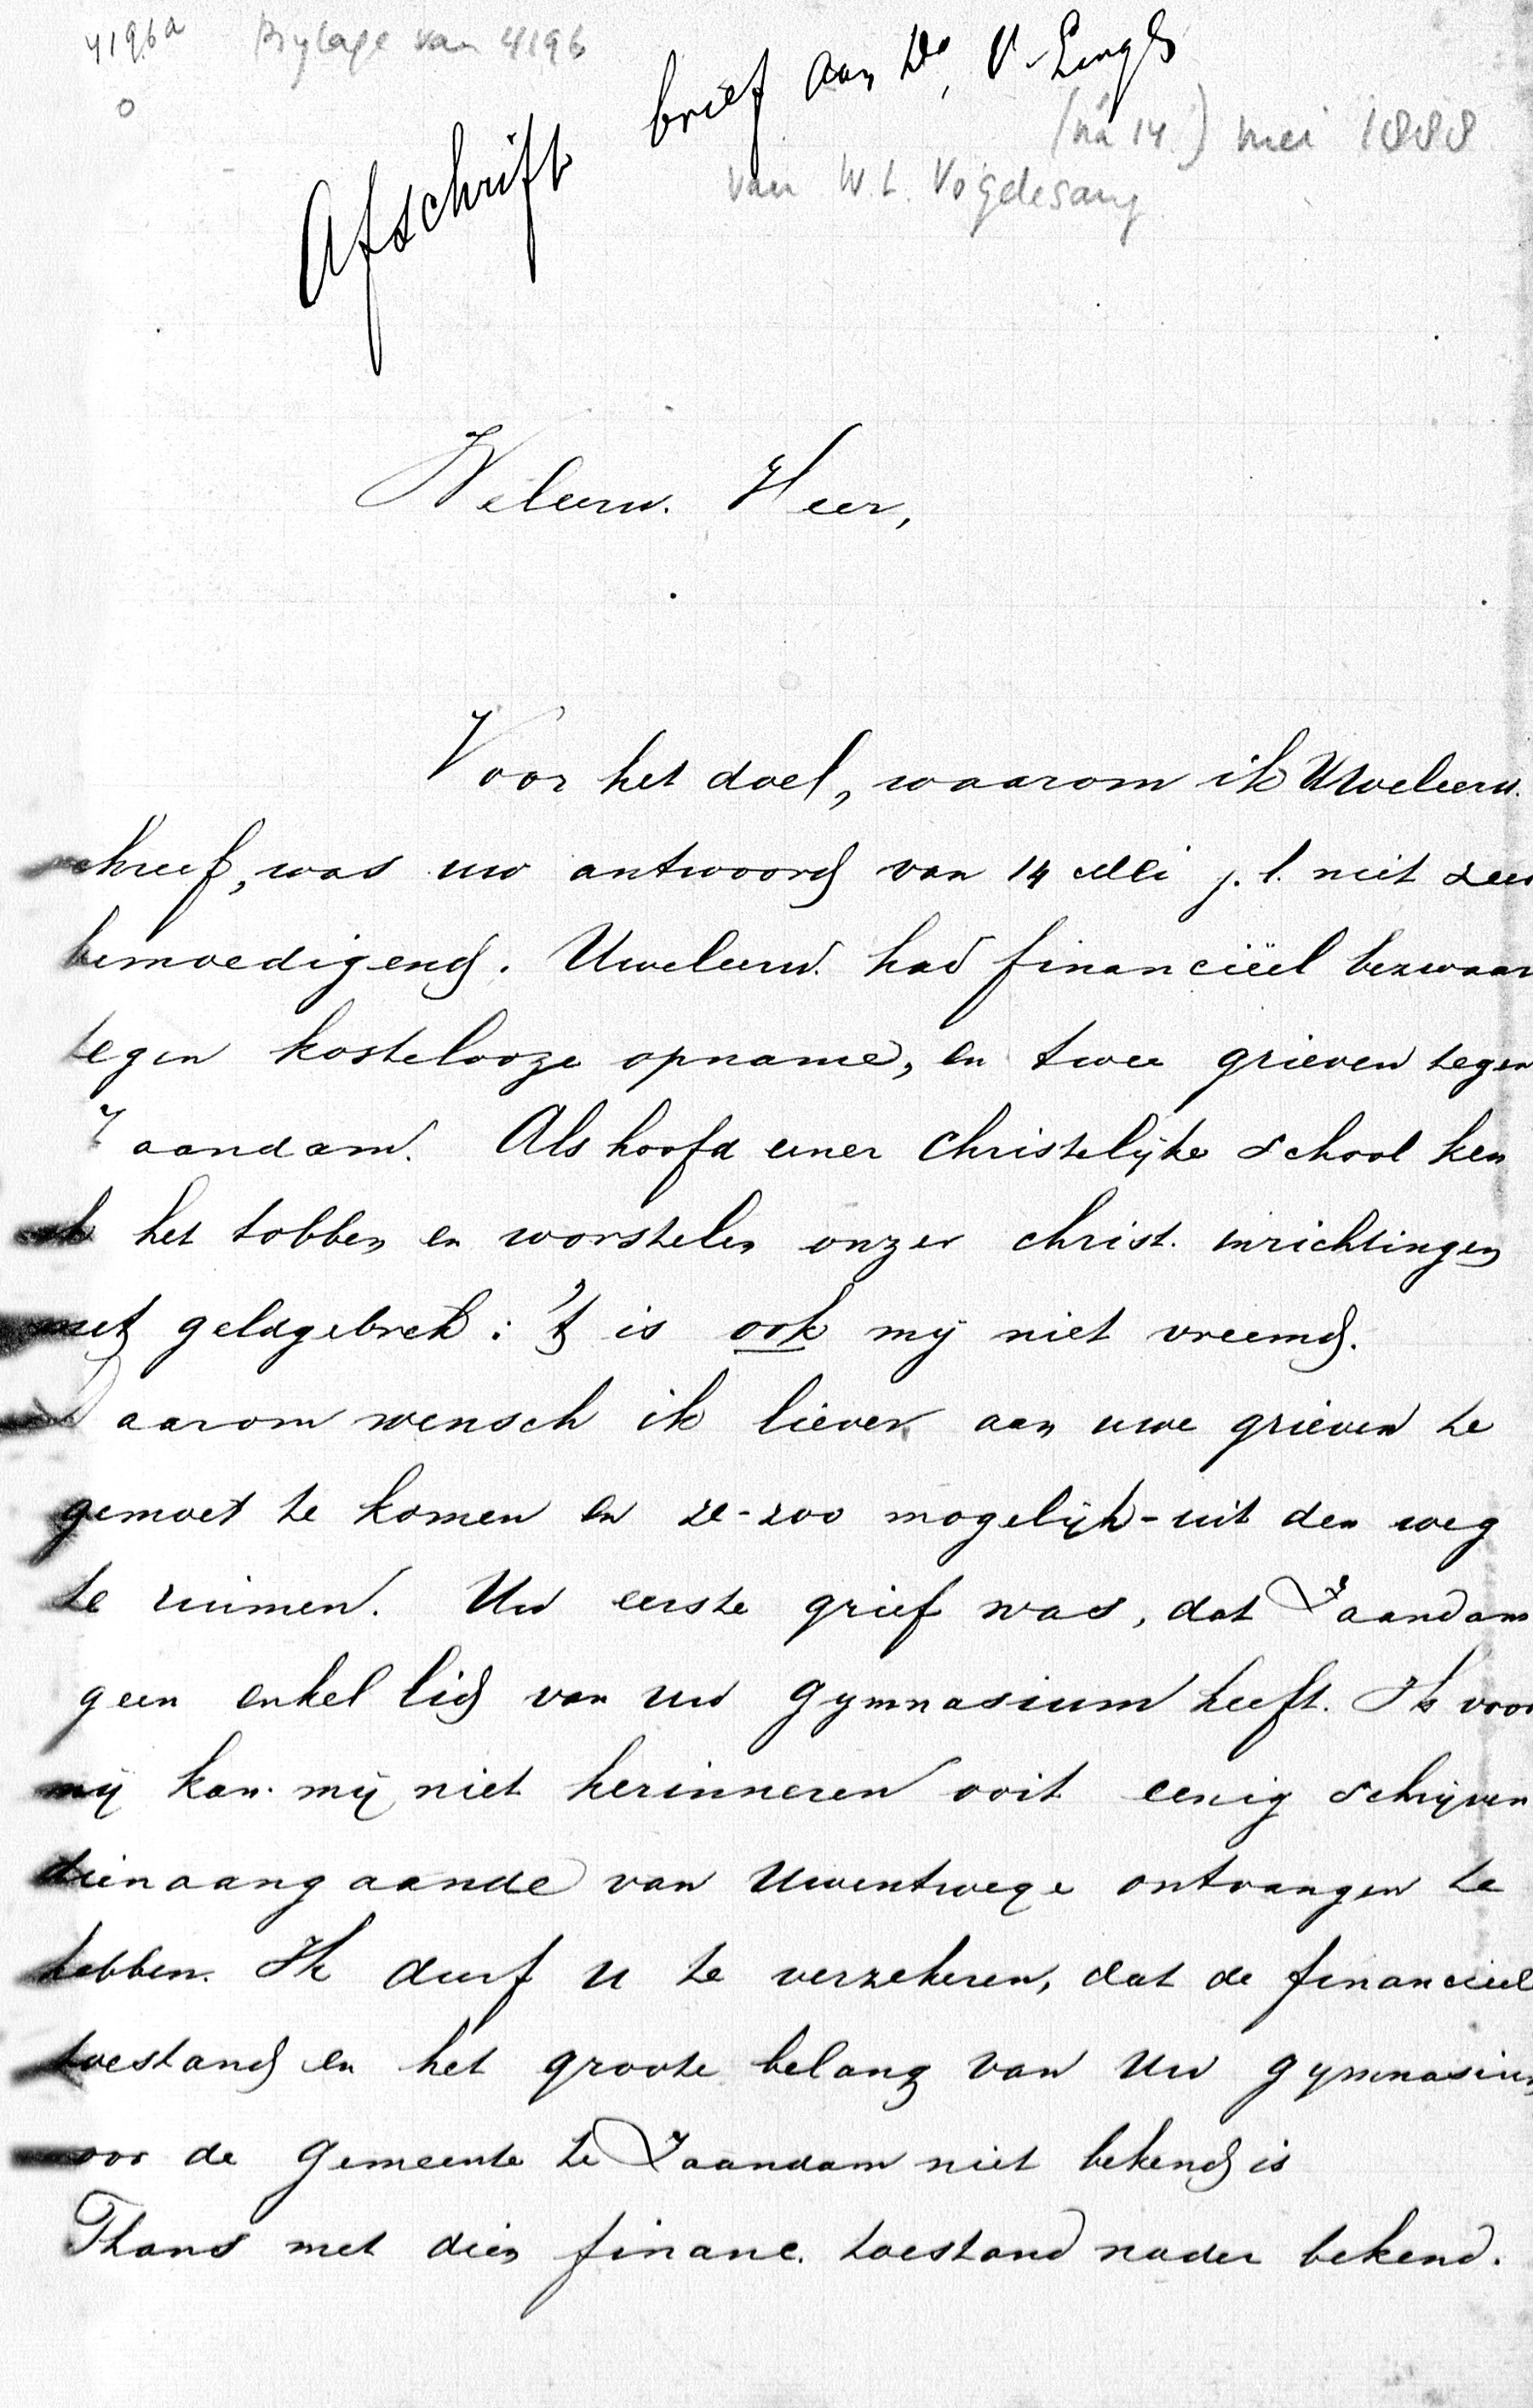 4196a Bijlage van 4196
0
Afschrift brief aan Ds. v. Lingen
(na 14) mei 1888
van W.L. Vogelesang
Weleerw. Heer,
Voor het doel, waarom ik UWeleerw.
schreef, was uw antwoord van 14 Mei j.l. niet zeer
bemoedigend. Uweleerw. had financiëel bezwaar
tegen kostelooze opname, en twee grieven tegen
Zaandam. Als hoofd eener Christelijke School ken
ik het tobben en worstelen onzer christ. inrichtingen
met geldgebrek: 't is ook mij niet vreemd.
Daarom wensch ik liever aan uwe grieven te
gemoet te komen en ze-zoo mogelijk-uit den weg
te ruimen. Uw eerste grief was, dat Zaandam
geen enkel lid van uw Gymnasium heeft. Ik voor
mij kan mij niet herinneren ooit eenig schrijven
dienaangaande van Uwentwege ontvangen te
hebben. Ik durf u te verzekeren, dat de financieel
toestand en het groote belang van Uw gymnasium
voor de Gemeente te Zaandam niet bekend is
Thans met dien financ. toestand nader bekend.